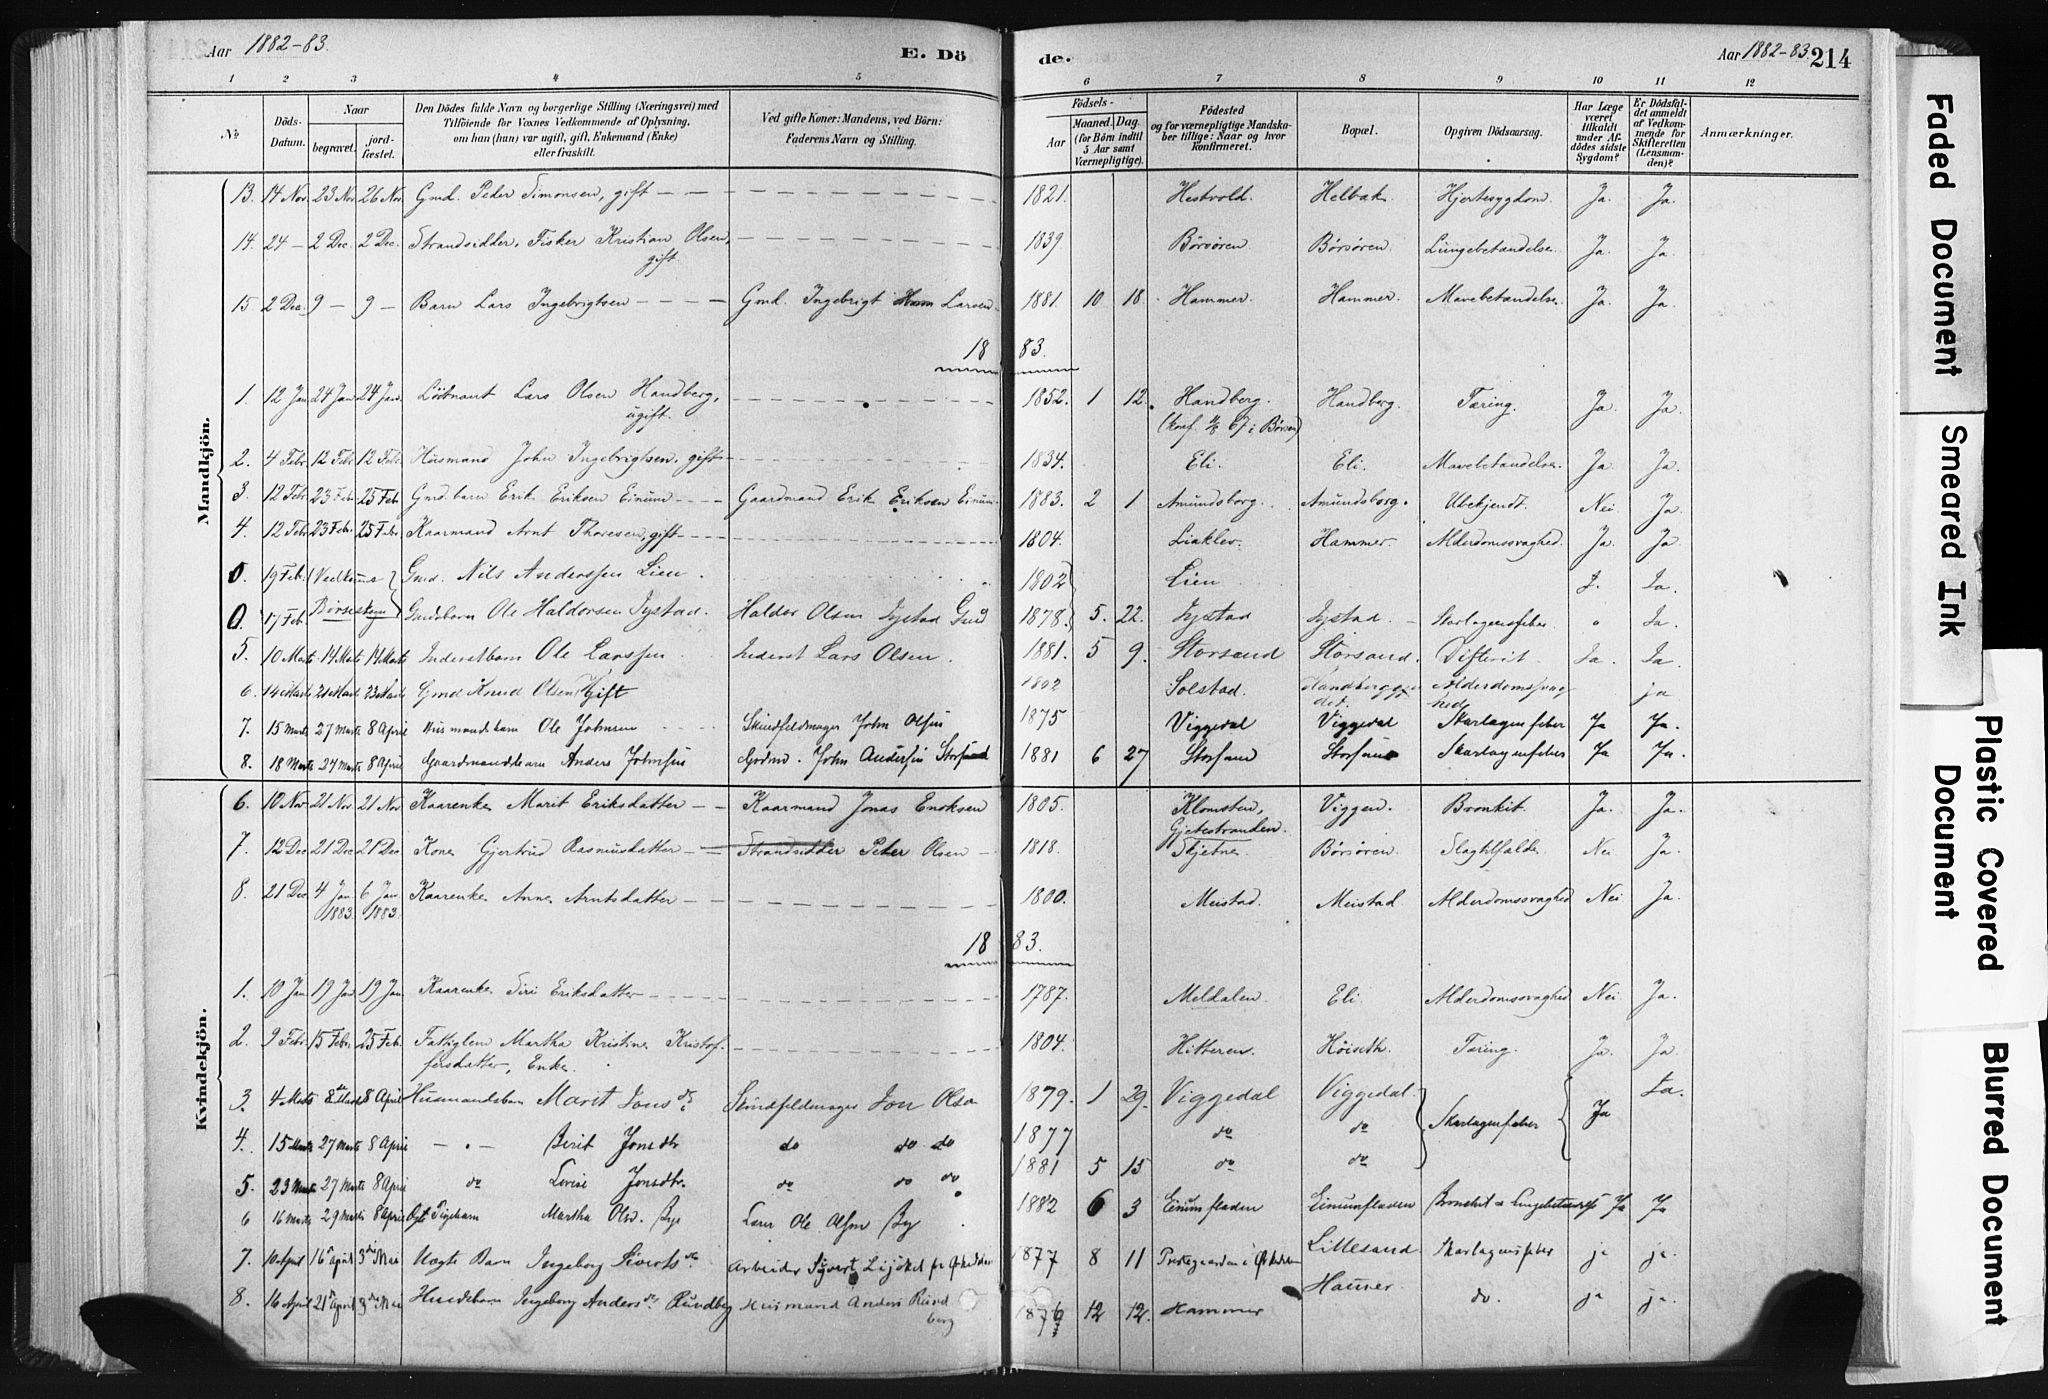 Aar 1882-83.
E. Döde.
Aar 1882-83. 214
1 2 3 4 5 6 7 8 9 10 11 12
No
Döds-Datum.
Naar begravet. jordfæstet.
Den Dödes fulde Navn og borgerlige Stilling (Næringsvei) med Tilföiende for Voxnes Vedkommende af Oplysning, om han (hun) var ugift, gift, Enkemand (Enke) eller fraskilt.
Ved gifte Koner: Mandens, ved Börn: Faderens Navn og Stilling.
Födsels- Aar Maaned. Dag. (for Börn indtil 5 Aar samt Værnepligtige).
Födested og for værnepligtige Mandskaber tillige: Naar og hvor Konfirmeret.
Bopæl.
Opgiven Dödsaarsag.
Har Læge været tilkaldt under Afdödes sidste Sygdom?
Er Dödsfaldet anmeldt af Vedkommende for Skifteretten (Lensmanden)?
Anmærkninger.
Mandkjön.
13. 14 Nov. 23 Nov 26 Nov. Gmd. Peder Simonsen, gift 1821. Hestvold. Helbak. Hjertesygdom. Ja. Ja.
14. 24 - 2 Dec. 2 Dec. Strandsidder, Fisker Kristian Olsen, gift. 1839 Børsøren Børsøren. Lungebetændelse. Ja. Ja.
15. 2 Dec. 9 - 9 - Barn Lars Ingebrigtsen Gmd. Ingebrigt Larsen 1881. 10 18. Hammer. Hammer. Mavebetændelse. Ja. Ja.
1883.
1. 12 Jan 24 Jan 24 Jan. Løitnant Lars Olsen Handberg, ugift. 1852. 1 12. Handberg. (konf. 67 i Børsen) Handberg. Tæring. Ja. Ja.
2. 4 Febr. 12 Febr. 12 Febr. Husmand John Ingebrigtsen, gift 1834. Eli. Eli. Mavebetændelse. Ja Ja.
3. 12 Febr. 23 Feb. 25 Feb. Gmd.barn Erik Eriksen Einum Gaardmand Erik Eriksen Einum 1883. 2 1 Amundsborg. Amundsborg. Ubekjendt. Nei Ja.
4. 12 Febr. 23 Febr. 25 Febr. Kaarmand Arnt Thoresen, gift 1804. Liaklev. Hammer. Alderdomssvaghed. Ja. Ja
0. 19 Feb. Gmd. Nils Anderssen Lien. 1802 Lien J. Ja.
0. 17 Feb. Børseskogn Gmdsbarn Ole Haldorsen Tystad. Haldor Olsen Tystad Gmd 1878. 5. 22. Tystad Tystad. Skarlagensfeber Ja.
5. 10 Marts 14 Marts 14 Marts Inderstbarn Ole Larssen Inderst Lars Olsen. 1881. 5 9. Storsand Storsand. Difterit. Ja. Ja.
6. 14 Marts 21 Marts 23 Marts Gmd Knud Olsen Gift 1802 Solstad. Alderdomssvaghed ja
7. 15 Marts 27 Marts 8 April Husmandsbarn Ole Johnsen Skindfeldmager John Olsen 1875 Viggedal Viggedal Skarlagensfeber Ja Ja.
8. 18 Marts 24 Marts 8 April Gaardmandsbarn Anders Johnsen Grdmd. John Andersen Storsand 1881 6 27 Storsand Storsand Skarlagensfeber Ja Ja.
Kvindekjön.
6. 10 Nov 21 Nov. 21 Nov Kaarenke Marit Eriksdatter Kaarmand Jonas Enoksen 1805. Klomsten, Gjetestranden. Viggen. Bronkit. Ja. Ja.
7. 12 Dec 21 Dec 21 Dec. Kone Gjertrud Rasmusdatter Strandsidder Peter Olsen 1818. Skjetne Børsøren. Slagtilfælde Nei Ja.
8. 21 Dec 4 Jan 1883. 6 Jan 1883. Kaarenke Anne Arntsdatter 1800. Meistad. Meistad. Alderdomssvaghed Nei Ja.
1883.
1. 10 Jan 19 Jan 19 Jan. Kaarenke Siri Eriksdatter 1787. Meldalen. Eli. Alderdomssvaghed Nei Ja.
2. 9 Febr. 15 Febr. 25 Feb. Fattiglem Martha Kristine Kristoffersdatter, Enke. 1804. Hitteren. Høiseth. Tæring. Ja. Ja.
3. 4 Marts 8 April Husmandsbarn Marit Jonsdr Skindfeldmager Jon Olsen 1879. 1 29. Viggedal Viggedal. Skarlagensfeber Ja Ja.
4. 15 Marts 27 Marts 8 April - " - Berit Jonsdtr do do do 1877 do do
5. 23 Marts 27 Marts 8 April do Lovise Jonsdtr. do do do 1881 5 15 do do
6 16 Marts 29 Marts 8 April Pigebarn Martha Olsd. By Ole Olsen By 1882 6 3 Einumfladen Einumfladen Ja Ja
7. 10 April 16 April 3die Mai Uægte Barn Ingeborg Siverts Arbeider 1877 8 11 Prestegaarden i Ørkedalen Lillesand. Skarlagensfeber ja ja.
8. 16 April 21 April 3die Mai Ingeborg Anders Rundberg Husmand Anders Rundberg 1876 12 12. Hammer Hammer do. ja ja.
Faded Document
Smeared Ink
Plastic Covered Document
Blurred Document